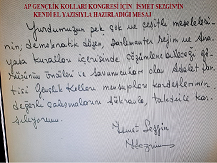 AP GENÇLİK KOLLARI KONGRESİ İÇİN İSMET SEZGİN'İN
KENDİ EL YAZISIYLA HAZIRLADIĞI MESAJ
Yurdumuzun pek çok ve çeşitli meseleleri-
nin, demokratik düzen, parlamenter rejim ve Ana-
yasa kuralları içerisinde çözümlenebileceği gö-
rüşünün öncüsü ve savunucuları olan Adalet Par-
tisi Gençlik Kolları mensupları kardeşlerimin
değerli çalışmalarını şükranla, takdirle kar-
şılıyorum.
İsmet Sezgin